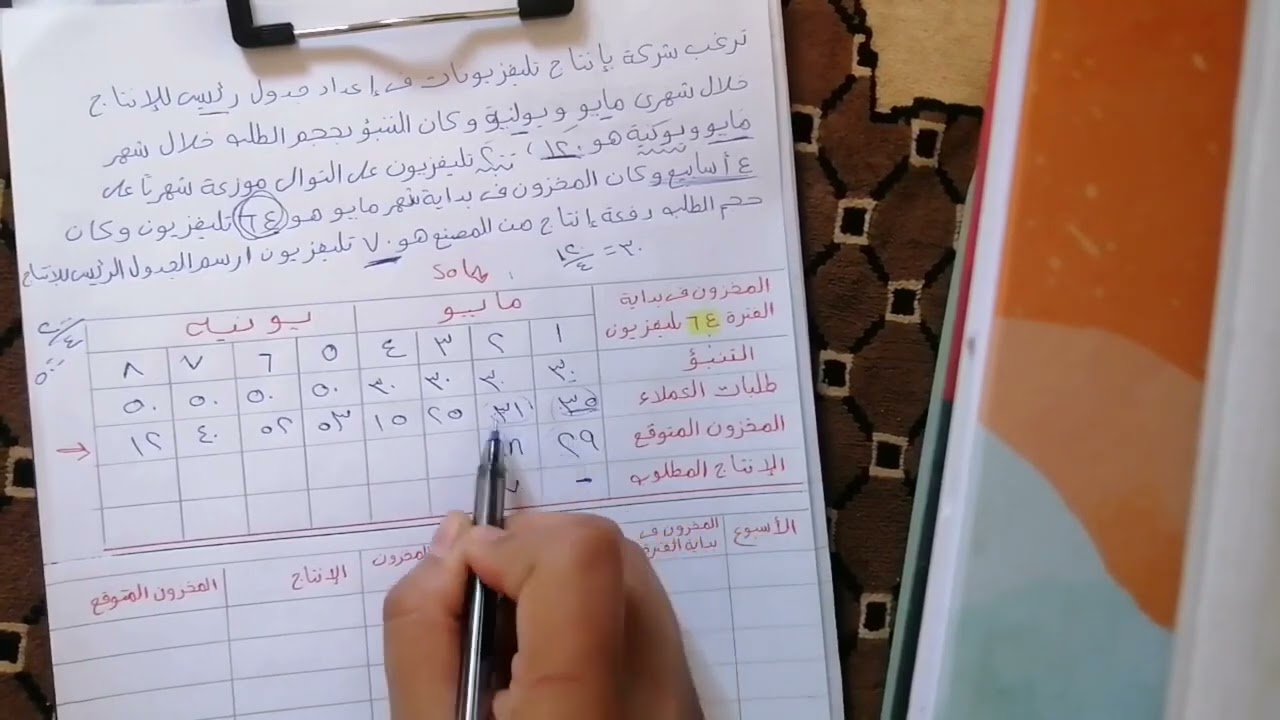 ترغب شركة بإنتاج تليفزيونات في إعداد جدول رئيسي للإنتاج
خلال شهري مايو و يونية وكان التنبؤ بحجم الطلب خلال شهر
مايو و يونية هو ١٢٠، تليفزيون على التوالي موزعة شهرياً على
٤ أسابيع وكان المخزون في بداية شهر مايو هو ٦٤ تليفزيون وكان
حجم الطلب دفعة إنتاج من المصنع هو ٧٠ تليفزيون ارسم الجدول الرئيسي للإنتاج
١٢٠/٤ = ٣٠
المخزون في بداية الفترة ٦٤ تليفزيون مايو يونيه
١ ٢ ٣ ٤ ٥ ٦ ٧ ٨
التنبؤ ٣٠ ٣٠ ٣٠ ٣٠ ٥٠ ٥٠ ٥٠ ٥٠
طلبات العملاء ٣٥ ٣١ ٢٥ ١٥ ٥٣ ٥٢ ٤٠ ١٢
المخزون المتوقع ٢٩
الإنتاج المطلوب -
الأسبوع المخزون في بداية الفترة المخزون الإنتاج المخزون المتوقع